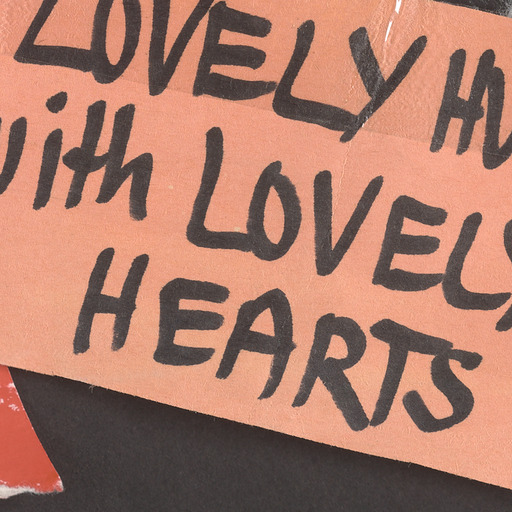 LOVELY
with LOVELY
HEARTS